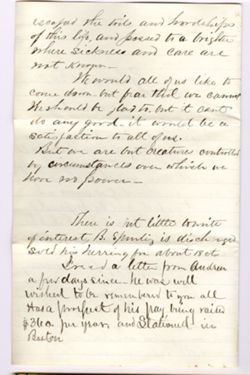 escaped the toils and hardships
of this life, and passed to a brighter
where sickness and care are
not known—
We would all of us like to
come down but fear that we cannot
We should be glad to but it cant
do any good. it would be a
satisfaction to all of us.
But we are but creatures controlled
by circumstances over which we
have no power—
There is but little to write
of interest B. is discharged
sold his herring for about
a letter from Andrew
a few days since. he was well
wished to be remembered to you all
Has a prospect of his pay being raised
$360 per year, and Stationed in
Boston